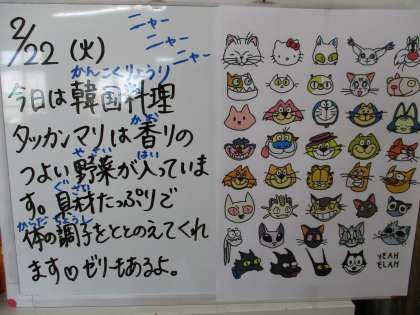 2/22(火)
ニャー
ニャー
ニャー
かんこくりょうり
今日は韓国料理
かお
タッカンマリは香りの
やさい はい
つよい野菜が入っていま
ぐざい
す。具材たっぷりで
からだ ちょうし
体の調子をととのえてくれ
ます♡ゼリーもあるよ。
YEAH
ELAH